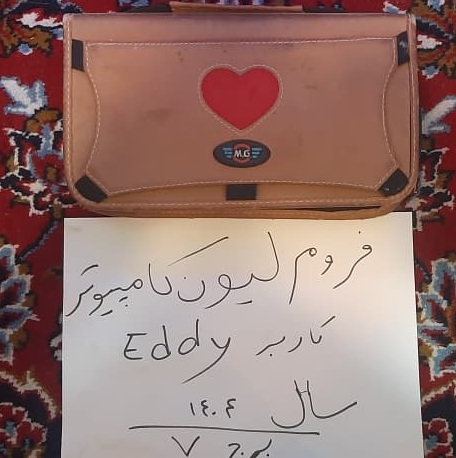 M.G
فروم لیون کامپیوتر
کاربر Eddy
سال ۱۴۰۴
برج ۷